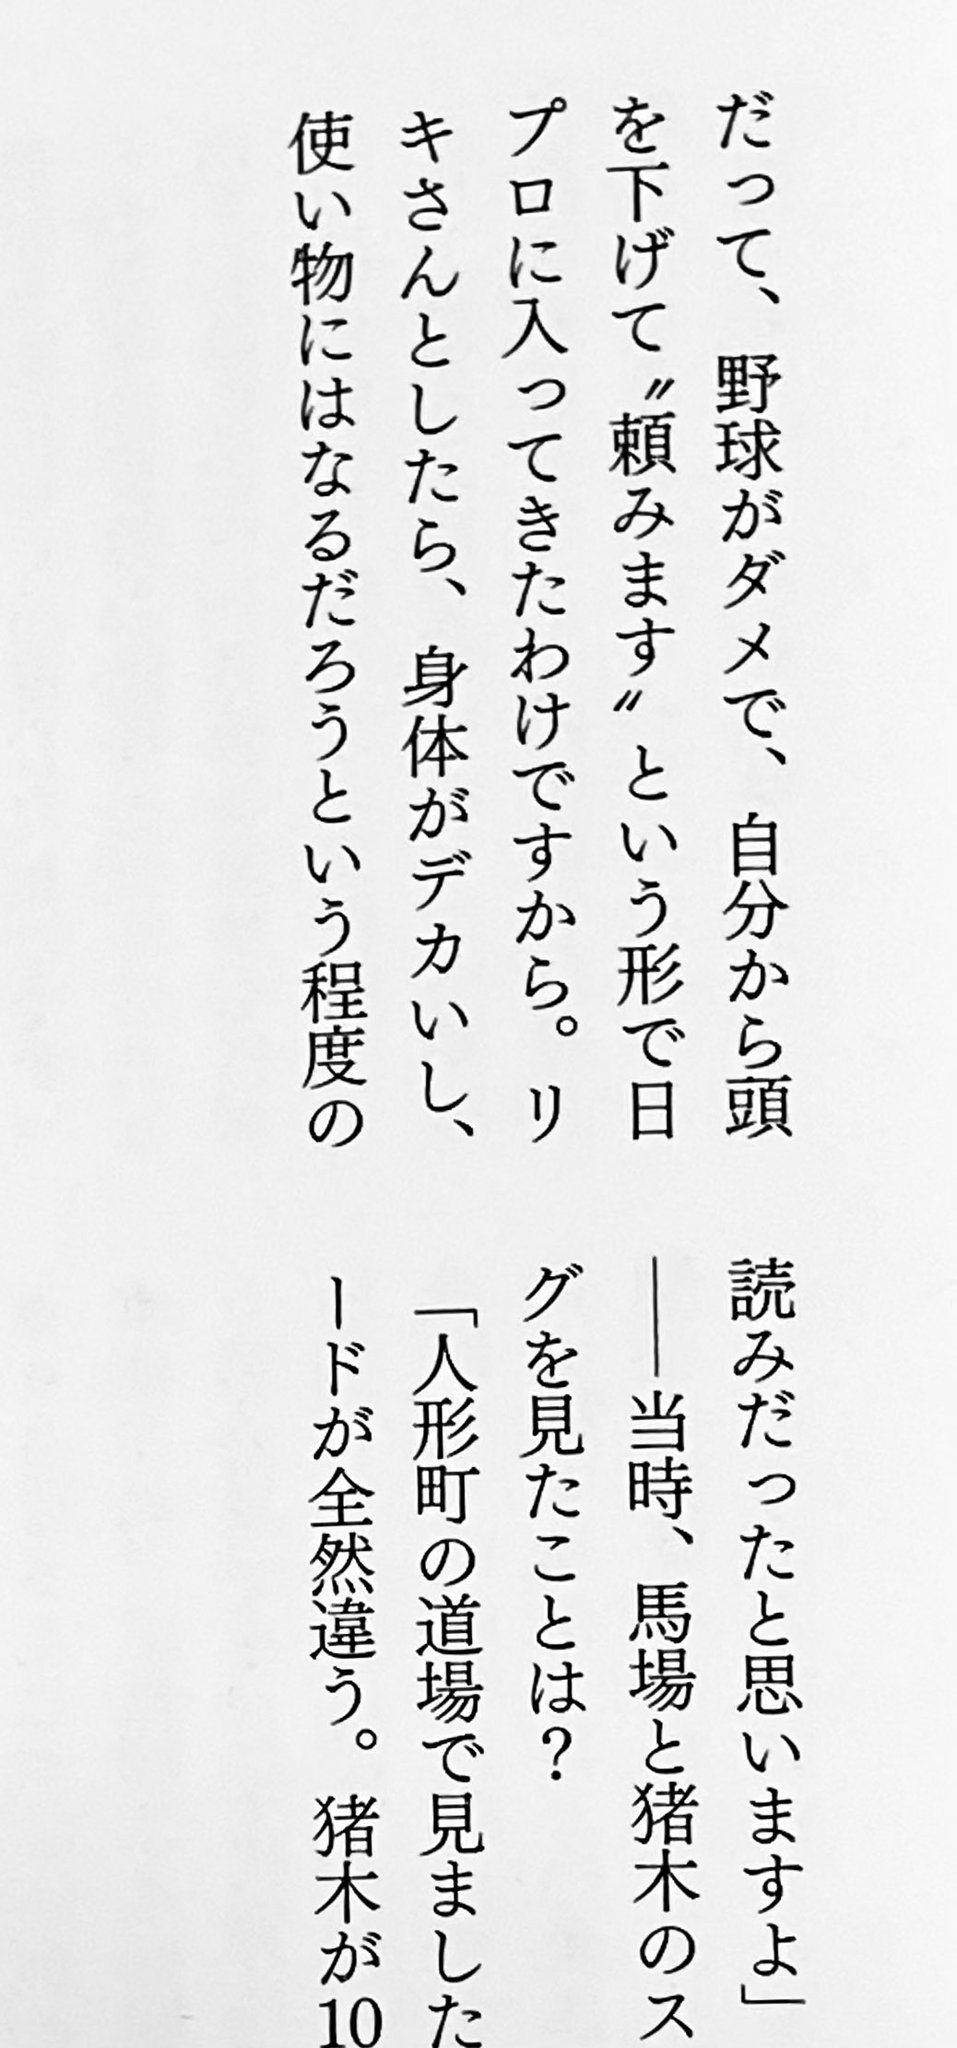 だって、野球がダメで、自分から頭
を下げて〝頼みます〟という形で日
プロに入ってきたわけですから。リ
キさんとしたら、身体がデカいし、
使い物にはなるだろうという程度の
読みだったと思いますよ」
――当時、馬場と猪木のス
グを見たことは？
「人形町の道場で見ました
ードが全然違う。猪木が10